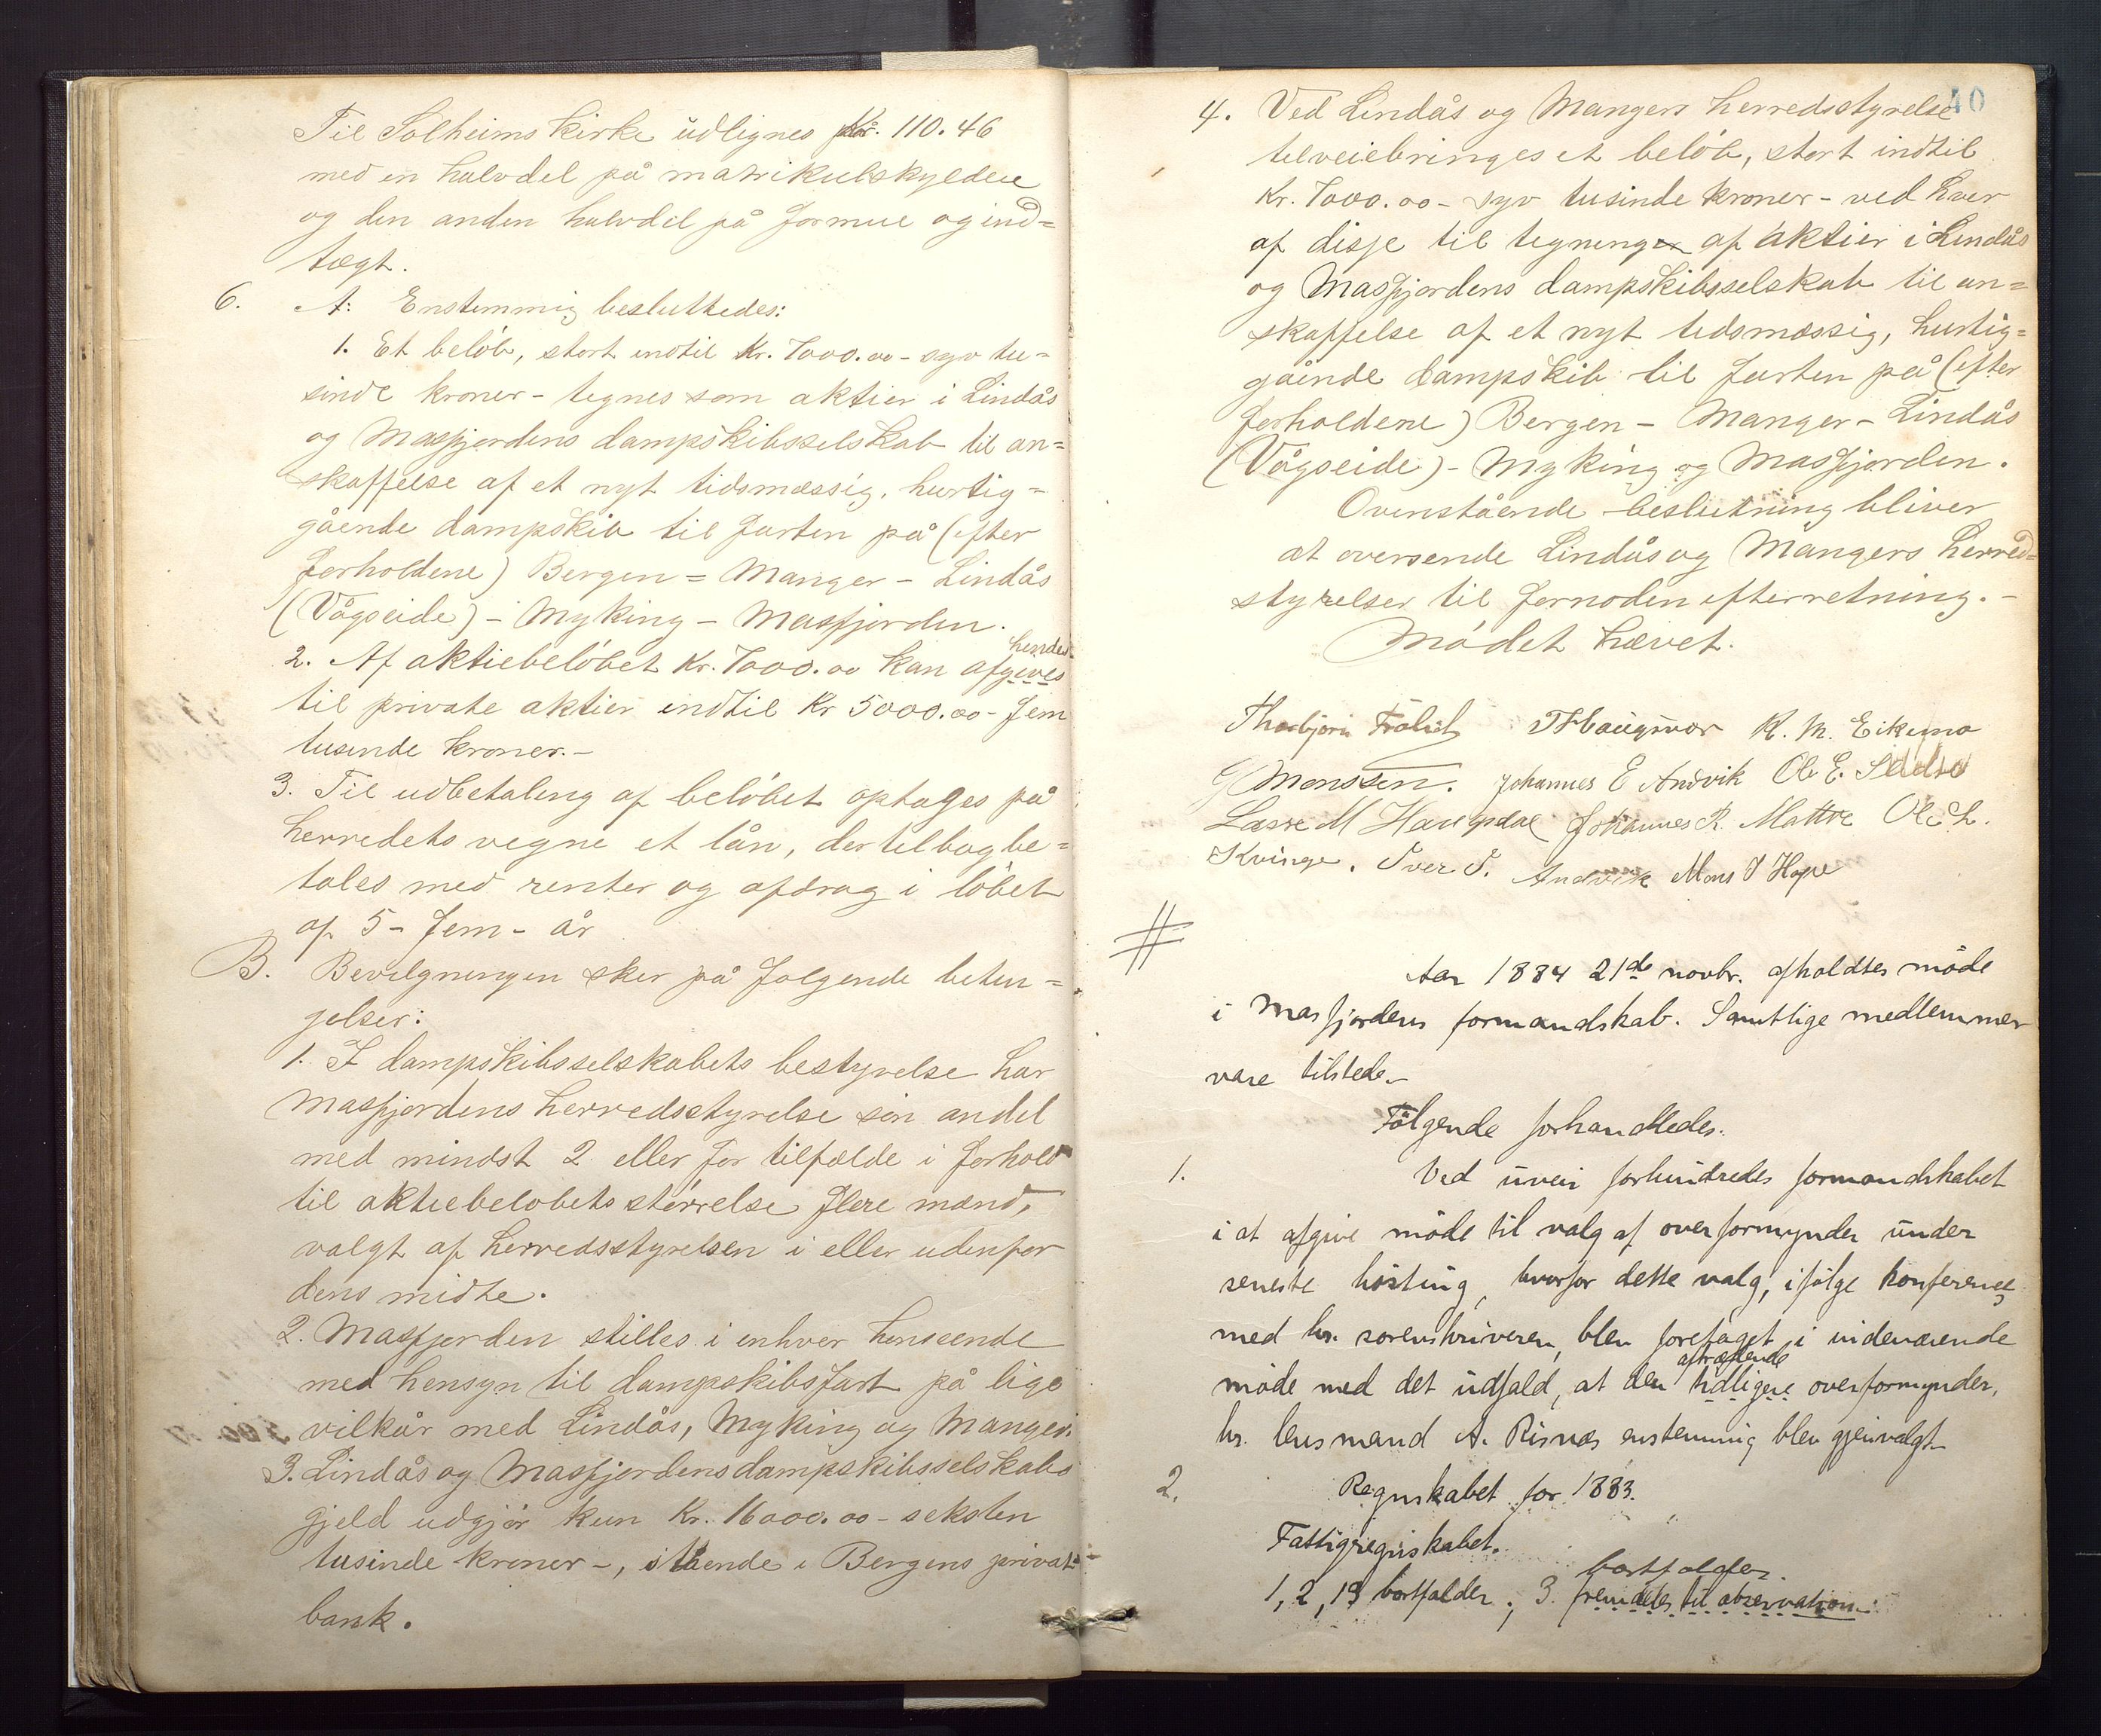 Til Solheims kirke udlignes Kr. 110.46
med en halvdel på matrikulskylden
og den anden halvdel på formue og ind=
tægt.
6. A: Enstemmig besluttedes:
1. Et beløb, stort indtil Kr. 7000.00 - syv tu=
sinde kroner - tegnes som aktier i Lindås
og Masfjordens dampskibsselskab til an=
skaffelse af et nyt tidsmæssig, hurtig=
gående dampskib til farten på (efter
forholdene) Bergen = Manger - Lindås
(Vågseide) - Myking - Masfjorden.
hendes
2. Af aktiebeløbet Kr. 7000.00 kan afgives
til private aktier indtil Kr 5000.00 - fem
tusinde kroner.-
3. Til udbetaling af beløbet optages på
herredets vegne et lån, der tilbagebe=
tales med renter og afdrag i løbet
af 5 - fem - år
B. Bevilgningen sker på følgende betin=
gelser:
1. I dampskibsselskabets bestyrelse har
Masfjordens herredsstyrelse sin andel
med mindst 2 eller for tilfælde i forhold
til aktiebeløbets størrelse flere mænd,
valgt af herredsstyrelsen i eller udenfor
dens midte.
2. Masfjorden stilles i enhver henseende
med hensyn til dampskibsfart på lige
vilkår med Lindås, Myking og Manger.
3. Lindås og Masfjordens dampskibsselskabs
gjeld udgjør kun Kr. 16000.00 - seksten
tusinde kroner -, stående i Bergens privat=
bank.
40
4. Ved Lindås og Mangers herredsstyrelse
tilveiebringes et beløb, stort indtil
Kr. 7000.00 - syv tusinde kroner - ved hver
af disse til tegninger af aktier i Lindås
og Masfjordens dampskibsselskab til an=
skaffelse af et nyt tidsmæssig, hurtig=
gående dampskib til farten på (efter
forholdene) Bergen - Manger - Lindås
(Vågseide) - Myking og Masfjorden.
Ovenstående beslutning bliver
at oversende Lindås og Mangers herred=
styrelser til fornøden efterretning. -
Mødet hævet.
Thorbjørn Frølich K. M. Eikemo
Monssen. Johannes E Andvik Ole E.
Lasse M Haugsdal Johannes R. Mattre Ole L.
Kvinge. Iver I. Andvik Mons I Hope
#
Aar 1884 21de novbr. afholdtes møde
i Masfjordens formandskab. Samtlige medlemmer
vare tilstede.-
Følgende forhandledes:
1. Ved uveir forhindredes formandskabet
i at afgive møde til valg af overformynder under
seneste høstting, hvorfor dette valg, ifølge konference
med hr. sorenskriveren, blev foretaget i indeværende
aftrædende
møde med det udfald, at den tidligere overformynder,
hr. lensmand A. Risnæs enstemmig blev gjenvalgt.-
2. Regnskabet for 1883.
Fattigregnskabet.
bortfalder.
1, 2, 19 bortfalder; 3. fremdeles til observation.